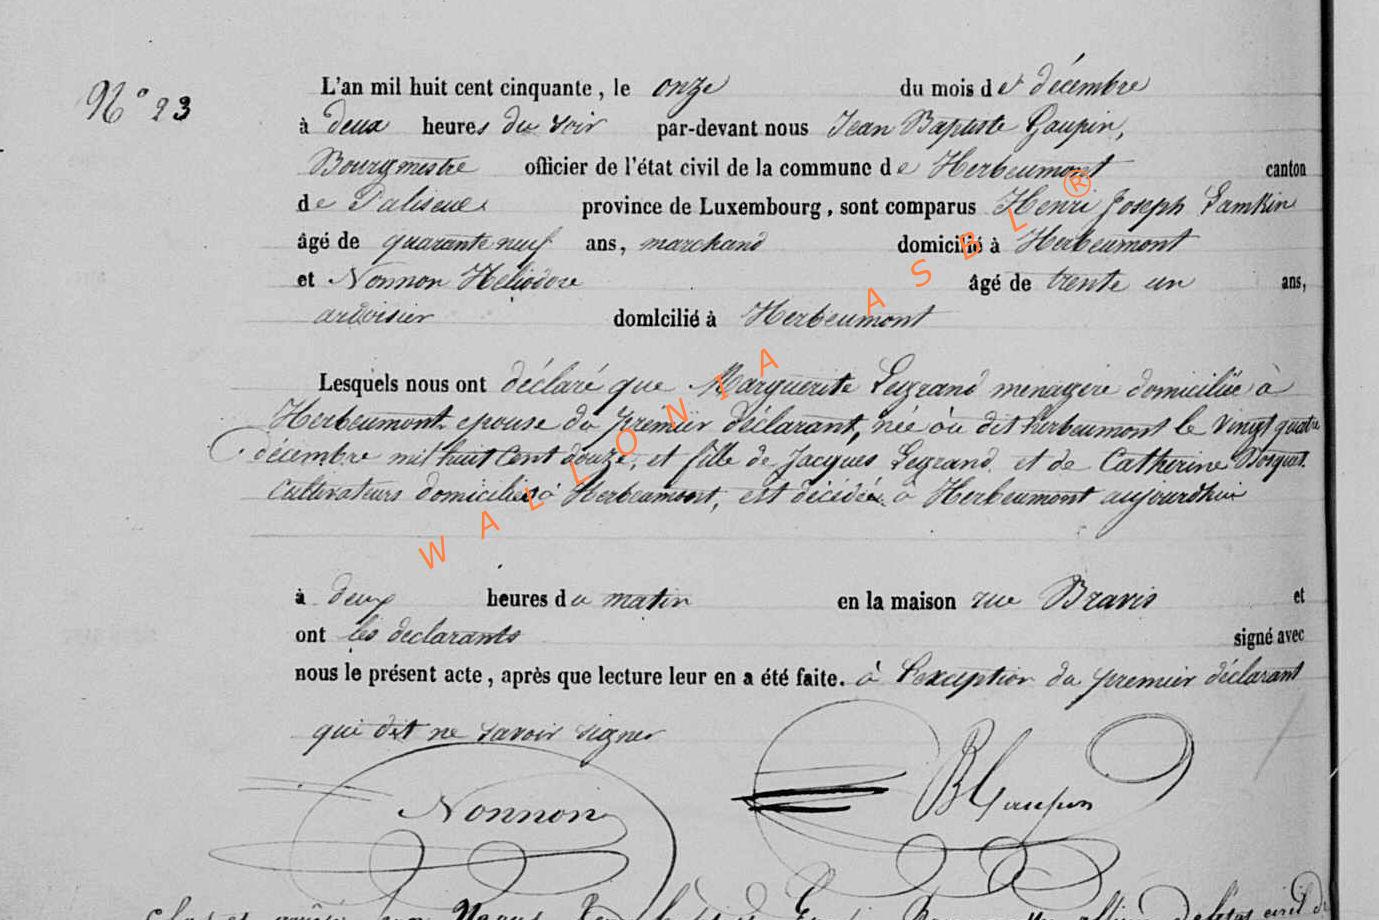 N° 23
L'an mil huit cent cinquante, le onze du mois de décembre
à deux heures du soir par-devant nous Jean Baptiste Goupin,
Bourgmestre officier de l'état civil de la commune de Herbeumont canton
de Paliseul province de Luxembourg, sont comparus Henri Joseph Lamkin
âgé de quarante neuf ans, marchand domicilié à Herbeumont
et Nonnon Héliodore âgé de trente un ans,
ardoisier domicilié à Herbeumont
Lesquels nous ont déclaré que Marguerite Legrand menagère domiciliée à
Herbeumont epouse du premier déclarant, née au dit herbeumont le vingt quatre
décembre mil huit cent douze, et fille de Jacques Legrand et de Catherine Bosquet
cultivateurs domiciliés à Herbeumont, est décédée à Herbeumont aujourdhui
à deux heures du matin en la maison rue Bravis et
ont les declarants signé avec
nous le présent acte, après que lecture leur en a été faite. à l'exception du premier déclarant
qui dit ne savoir signer
Nonnon
WALLONIA ASBL®